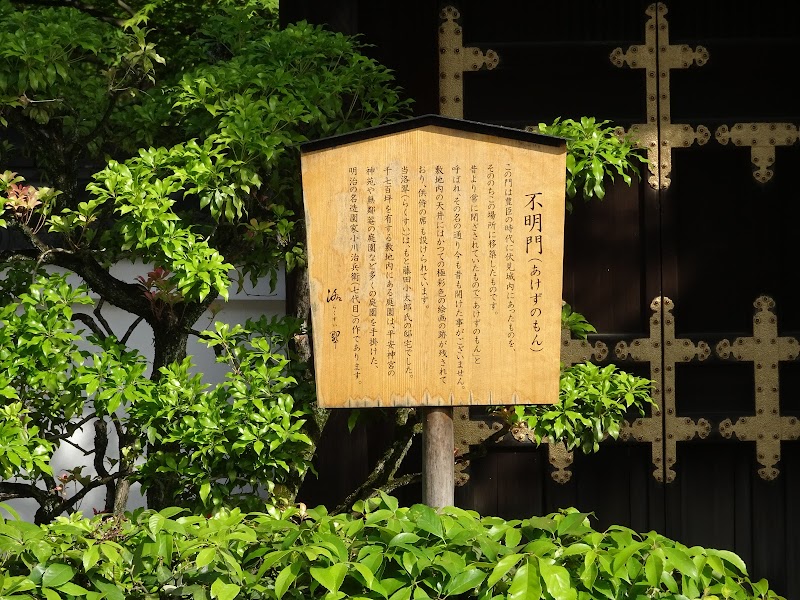 不明門(あけずのもん)
この門は豊臣の時代に伏見城内にあったものを、
そののちこの場所に移築したものです。
昔より常に閉ざされていたもので「あけずのもん」と
呼ばれ、その名の通り今も昔も開けた事がございません。
敷地内の天井にはかつての極彩色の絵画の跡が残されて
おり、供侍の席も設けられています。
当洛翠(らくすい)は、もと藤田小太郎氏の邸宅でした。
千七百坪を有する敷地内にある庭園は、平安神宮の
神苑や無鄰菴の庭園など多くの庭園を手掛けた、
明治の名造園家小川治兵衛(七代目)の作であります。
洛翠